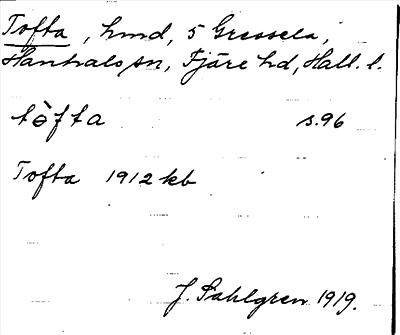 Tofta, hmd, 5 Gressela,
Hanhals sn, Fjäre hd, Hall. l.
tòfta s. 96
Tofta 1912 kb
J. Sahlgren 1919.